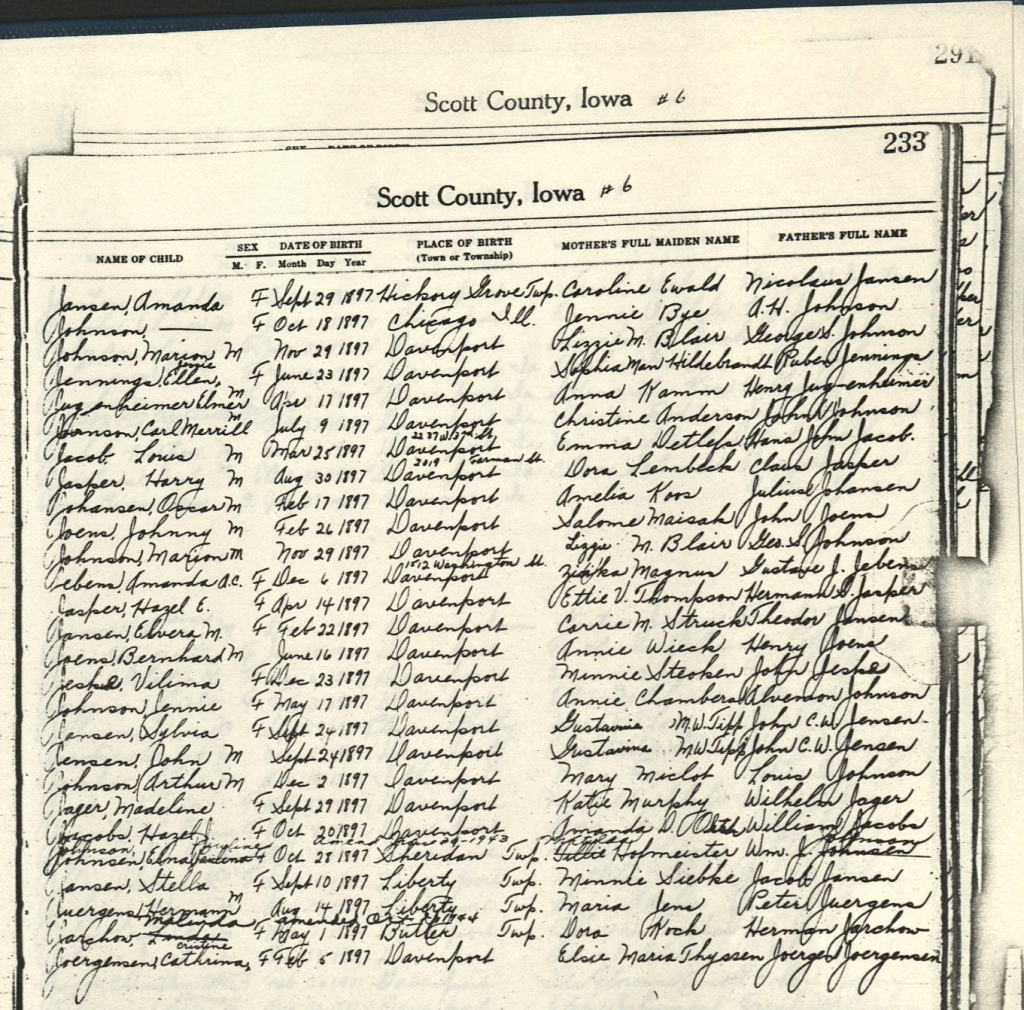 291
Scott County, Iowa # 6
233
Scott County, Iowa # 6
NAME OF CHILD SEX M. F. DATE OF BIRTH Month Day Year PLACE OF BIRTH (Town or Township) MOTHER'S FULL MAIDEN NAME FATHER'S FULL NAME
Jansen, Amanda F Sept 29 1897 Hickory Grove Twp. Caroline Ewald Nicolaus Jansen
Johnson, — F Oct 18 1897 Chicago Ill. Jennie Bye A.H. Johnson
Johnson, Marion M Nov 29 1897 Davenport Lizzie M. Blair George S. Johnson
Jennings, Ellen, F June 23 1897 Davenport Sophia Hildebrandt Ruben Jennings
Jugenheimer Elmer M Apr 17 1897 Davenport Anna Kamm Henry Jugenheimer
Johnson, Carl Merrill M July 9 1897 Davenport Christine Anderson John Johnson
Jacob, Louis M Mar 25 1897 Davenport Emma Detlefs Hans John Jacob.
Jasper, Harry M Aug 30 1897 2019 Davenport Dora Lembeck Claus Jasper
Johansen, Oscar M Feb 17 1897 Davenport Amelia Koos Julius Johansen
Joens, Johnny M Feb 26 1897 Davenport Salome Maisak John Joens
Johnson, Marion M Nov 29 1897 Davenport Lizzie M. Blair Geo. S. Johnson
Jebens, Amanda A.C. F Dec 6 1897 1512 Washington St. Davenport Magnus Gustave J. Jebens
Jasper, Hazel E. F Apr 14 1897 Davenport Ettie V. Thompson Hermann S. Jasper
Jansen, Elvera M. F Feb 22 1897 Davenport Carrie M. Struck Theodor Jansen
Joens, Bernhard M June 16 1897 Davenport Annie Wieck Henry Joens
Jeske, Vilima F Dec 23 1897 Davenport Minnie Stecken John Jeske
Johnson, Jennie F May 17 1897 Davenport Annie Chambers Alvenson Johnson
Jensen, Sylvia F Sept 24 1897 Davenport Gustavina M.W. Tipp John C.W. Jensen
Jensen, John M Sept 24 1897 Davenport Gustavina M.W. Tipp John C.W. Jensen
Johnson, Arthur M Dec 2 1897 Davenport Mary Miclot Louis Johnson
Jager, Madeline F Sept 29 1897 Davenport Katie Murphy Wilhelm Jager
Jacobs, Hazel J. F Oct 20 1897 Davenport Amanda D. William Jacobs
Johnson, Johnson
Johnsen, Elna F Oct 28 1897 Sheridan Twp. Tillie Hofmeister Wm. J. Johnsen
Jansen, Stella F Sept 10 1897 Liberty Twp. Minnie Siebke Jacob Jansen
Juergens, Hermann M Aug 14 1897 Liberty Twp. Maria Jens Peter Juergens
Malinda amended
Jarchow, F May 1 1897 Butler Twp. Dora Koch Herman Jarchow
cristine
Joergensen, Cathrina, F Feb 5 1897 Davenport Elsie Maria Thyssen Joergen Joergensen